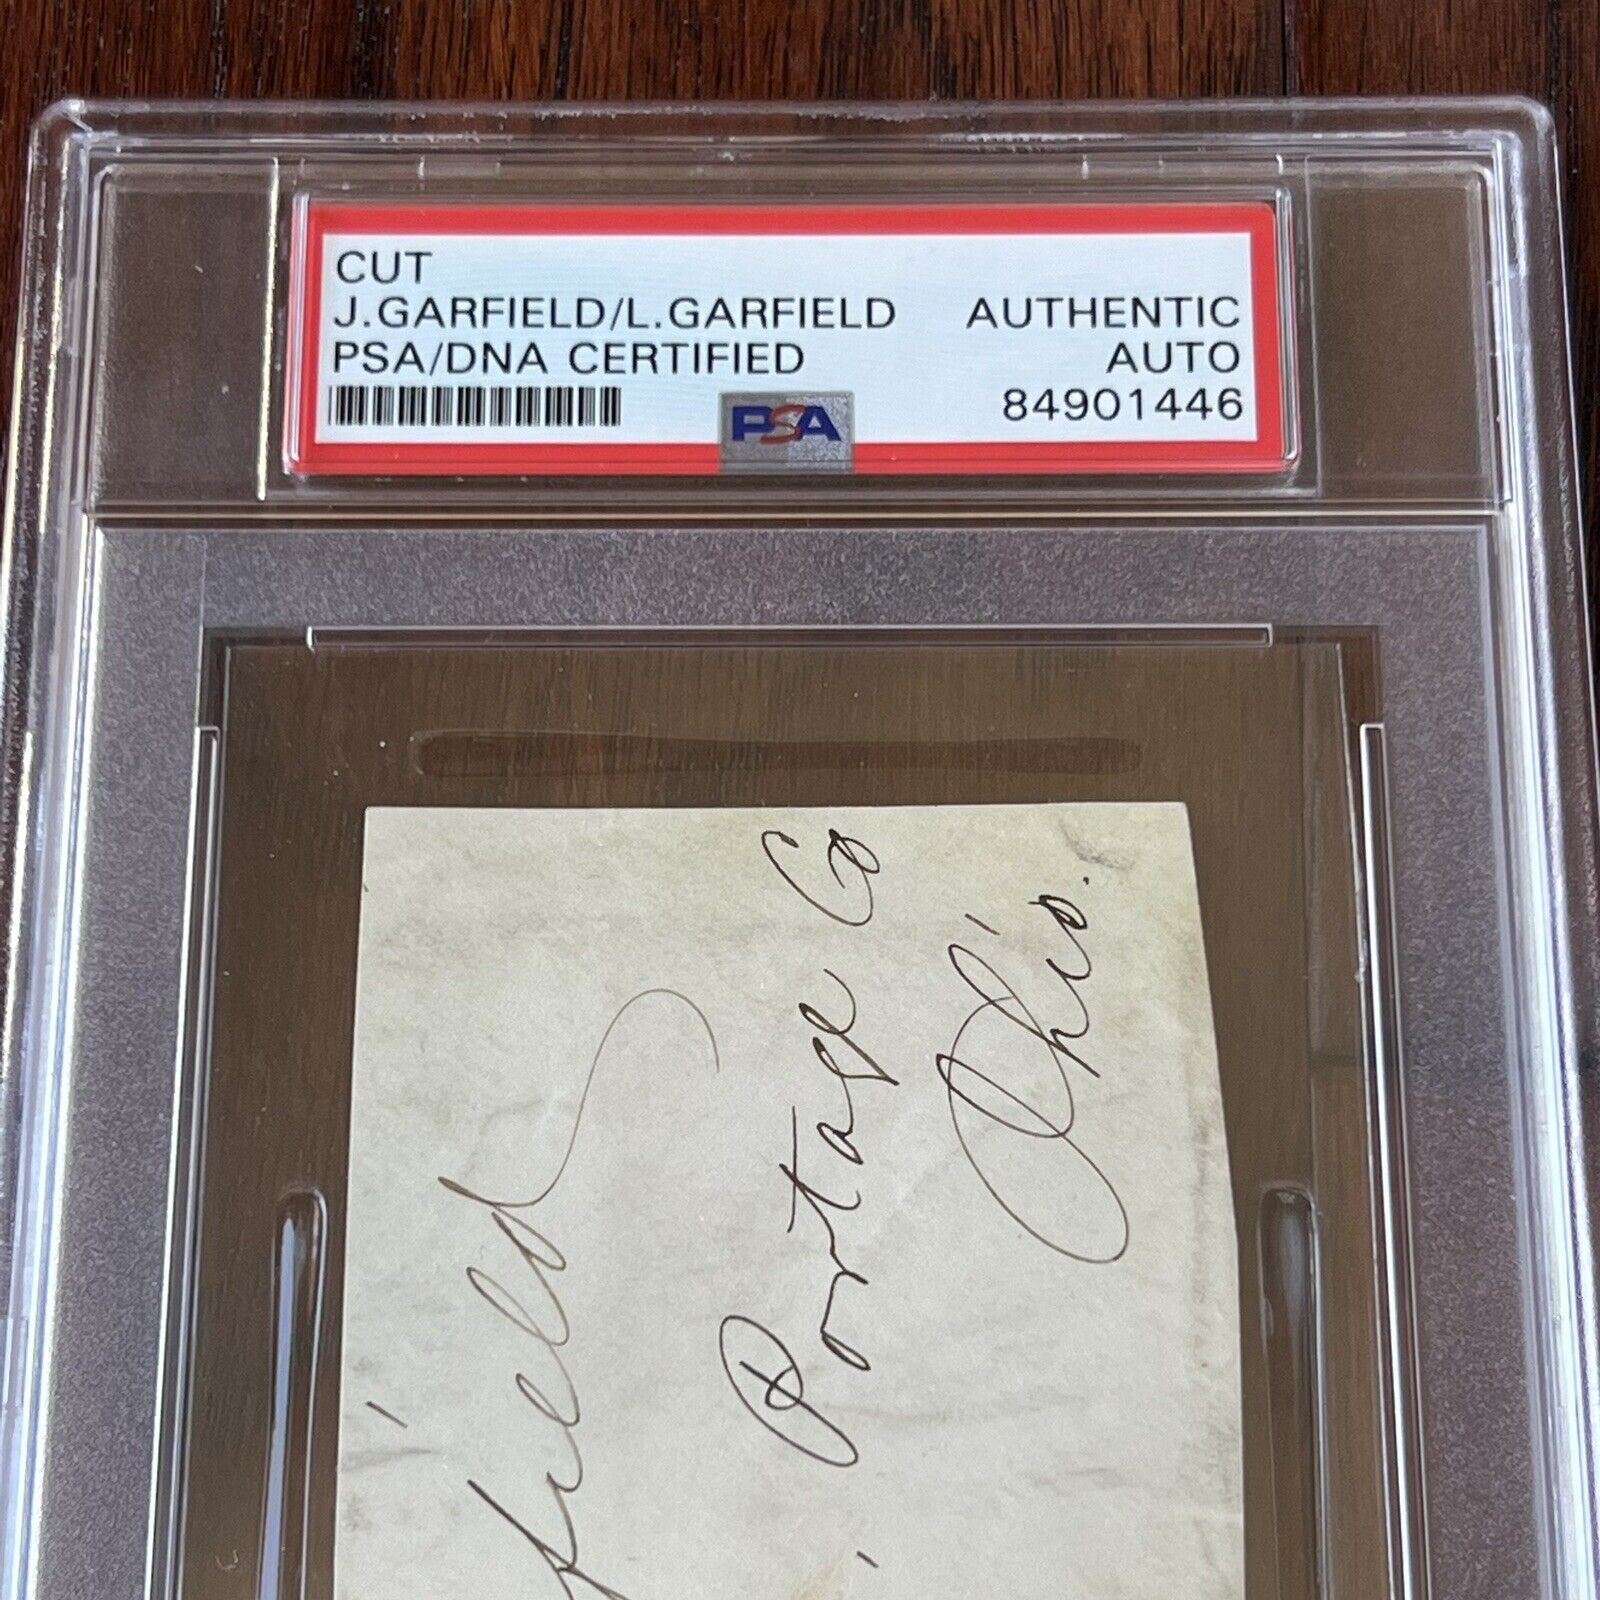 CUT
J.GARFIELD/L.GARFIELD
PSA/DNA CERTIFIED
AUTHENTIC
AUTO
84901446
PSA
field
Portage Co
Ohio.